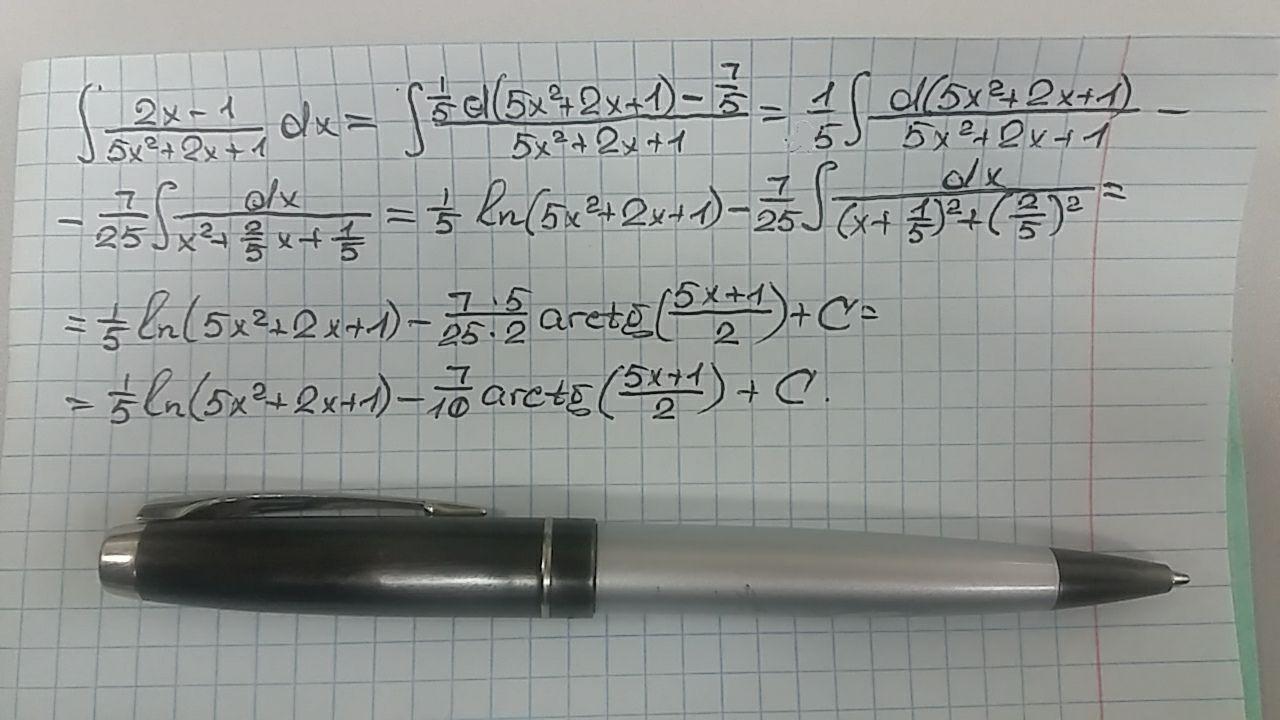 ∫ (2x-1)/(5x²+2x+1) dx = ∫ (1/5 d(5x²+2x+1) - 7/5)/(5x²+2x+1) = 1/5 ∫ d(5x²+2x+1)/(5x²+2x+1) -
- 7/25 ∫ dx/(x²+2/5 x+1/5) = 1/5 ln(5x²+2x+1) - 7/25 ∫ dx/((x+1/5)²+(2/5)²) =
= 1/5 ln(5x²+2x+1) - (7·5)/(25·2) arctg((5x+1)/2) + C =
= 1/5 ln(5x²+2x+1) - 7/10 arctg((5x+1)/2) + C.